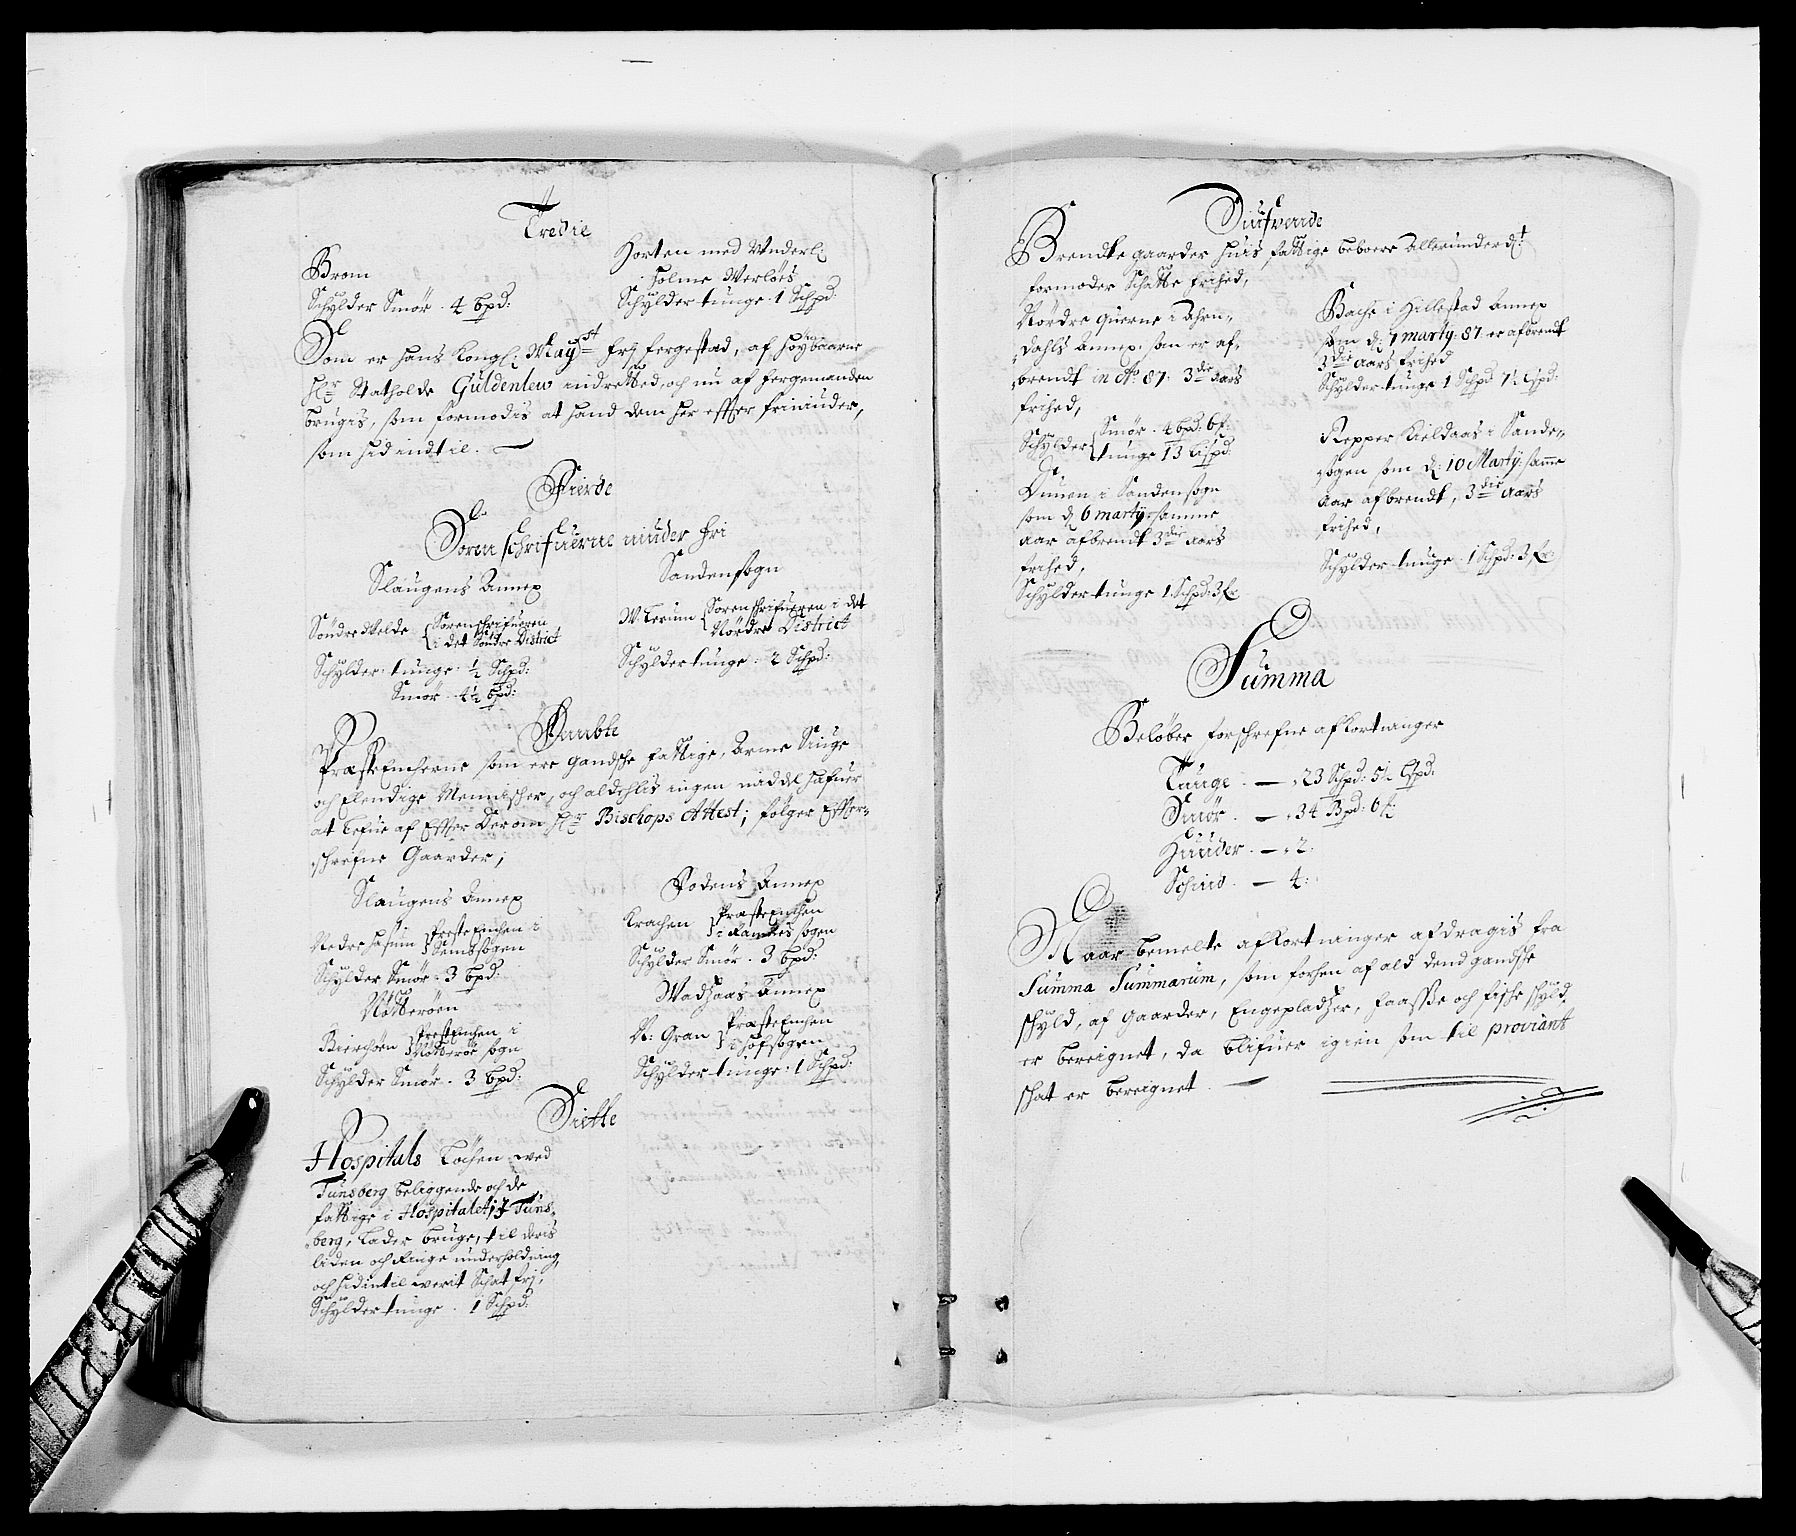 Tredie
Brom
Schylder Smör . 4 bpd:
Horten med Underl:
Holme Werlöes
Schylder tunge . 1 Schpd:
Som er hans Kongl: Mayst frj fergestad, af höybaarne
hr Statholde Güldenlew indretted, och nu af fergemanden
brugis, som formodis at hand dem her effter friniuder,
som hid indtil.
Fierde
Sorenschrifuerne niuder fri
Slaugens Annex
Söndre Kelde { Sorenschrifueren
i det Söndre District
Schylder tunge ½ Schpd:
Smör . 4½ bpd:
Sandensogn
W. Lerum { Sorenschrifueren i det
Nördre District
Schylder tunge . 2 Schpd:
Fembte
Præste Encherne som ere gandsche fattige, Arme Siuge
och Elendige Mennischer, och aldehlis ingen middel hafuer
at lefue af Effter Derom hr Bischops Attest; fölger Effter-
schrefne Gaarder;
Slaugens Annex
Neder hasum { Preste Enchen i
Sembsogen
Schylder Smör . 3 bpd:
Nötteröen
Bierchöen { Preste Enchen i
Nötterör sogn
Schylder Smör . 3 bpd:
Fodens Annex
Krachen { Præste Enchen
i Ramnes sogen
Schylder Smör . 3 bpd:
Wadsaas Annex
N: Gran { Præste Enchen
i Hofsogen
Schylder tunge . 1 Schpd:
Siette
Hospitals Löchen wed
Tünsberg beliggende och de
fattige i Hospitalet i Tüns-
berg, Lader bruge, til deris
liden och Ringe underholdning,
och hidintil werit Schat frj,
Schylder tunge . 1 Schpd:
Siufvende
Brendte gaarder huis fattige beboere allerunderdt
formoder Schatte frihed,
Nördre Querne i Ahrn-
dahls Annex, som er af-
brendt in Ao 87: 3die Aars
frihed,
Schylder { Smör . 4 bpd: 6 f:
tunge 13 Lispd:
Duuen i Sandensogn
som d: 6 marty samme
aar afbrendt 3die Aars
frihed,
Schylder tunge 1 Schpd: 3 fr
Bache i Hillestad Annex
som d: 1 marty: 87 er afbrendt
3die Aars frihed
Schylder tunge 1 Schpd 7½ Lspd:
Repper Kieldaas i Sande-
sogen som d: 10 Marty: samme
Aar afbrendt, 3die Aars
frihed,
Schylder tunge . 1 Schpd: 3 fr
Summa
Belöber forschrefne afkortninger
Tunge . — 23 Schpd: 5½ Lspd:
Smör . — 34 Bpd: 6 f:
Huuder . — 2.
Schind . — 4:
Naar bemelte afkortninger afdragis fra
Summa Summarum, som forhen af ald dend gandsche
schyld, af Gaarder, Engepladtzer, Saasche och fische schyld
er bereignet, da blifuer igien som til proviant
schat er bereignet.